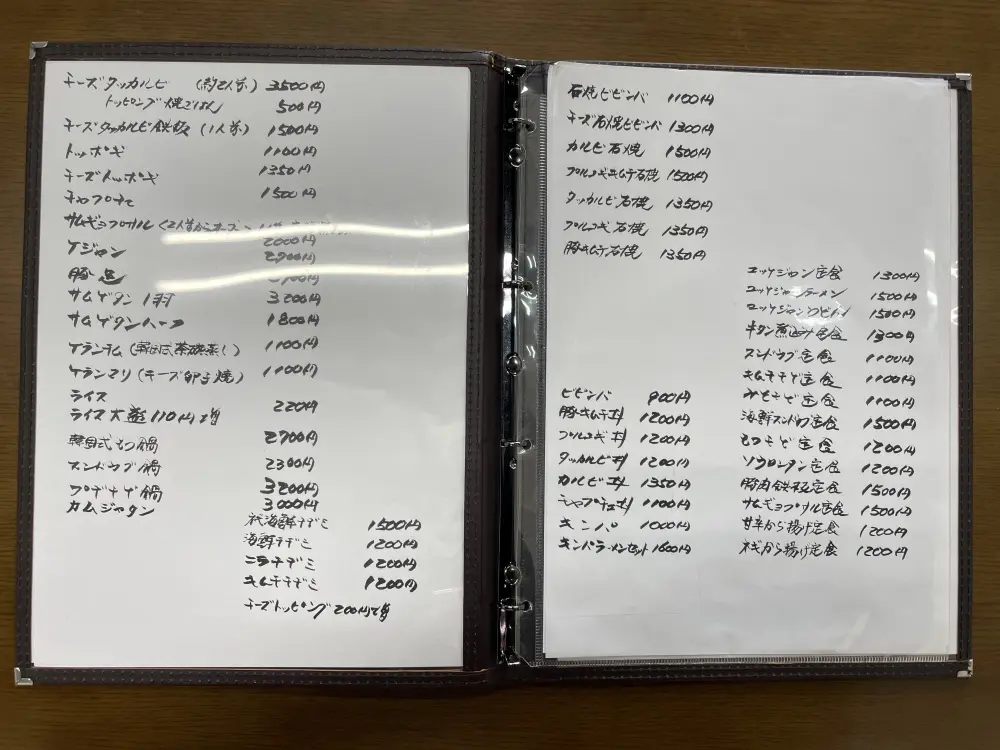 チーズタッカルビ (約2人前) 3500円
トッピング焼ごはん 500円
チーズタッカルビ鉄板 (1人前) 1500円
トッポギ 1100円
チーズトッポギ 1350円
チャプチェ 1500円
サムギョプサル (2人前からオーダー
2000円
ケジャン 2700円
豚足
サムゲタン 1羽 3200円
サムゲタンハーフ 1800円
ケランチム (韓国式茶碗蒸し) 1100円
ケランマリ (チーズ卵焼) 1100円
ライス 220円
ライス大盛 110円増
韓国式もつ鍋 2700円
スンドゥブ鍋 2300円
プデチゲ鍋 3200円
カムジャタン 3000円
ネギ海鮮チヂミ 1500円
海鮮チヂミ 1200円
ニラチヂミ 1200円
キムチチヂミ 1200円
チーズトッピング200円増
石焼ビビンバ 1100円
チーズ石焼ビビンバ 1300円
カルビ石焼 1500円
プルコギキムチ石焼 1500円
タッカルビ石焼 1350円
プルコギ石焼 1350円
豚キムチ石焼 1350円
ビビンバ 900円
豚キムチ丼 1200円
プルコギ丼 1200円
タッカルビ丼 1200円
カルビ丼 1350円
チャプチェ丼 1100円
キンパ 1000円
キンパラーメンセット 1600円
ユッケジャン定食 1300円
ユッケジャンラーメン 1500円
ユッケジャンクッパ 1500円
牛タン煮込み定食 1300円
スンドゥブ定食 1100円
キムチチゲ定食 1100円
みそチゲ定食 1100円
海鮮スンドゥブ定食 1500円
もつチゲ定食 1200円
ソウロンタン定食 1200円
豚肉鉄板定食 1500円
サムギョプサル定食 1500円
甘辛から揚げ定食 1200円
ネギから揚げ定食 1200円